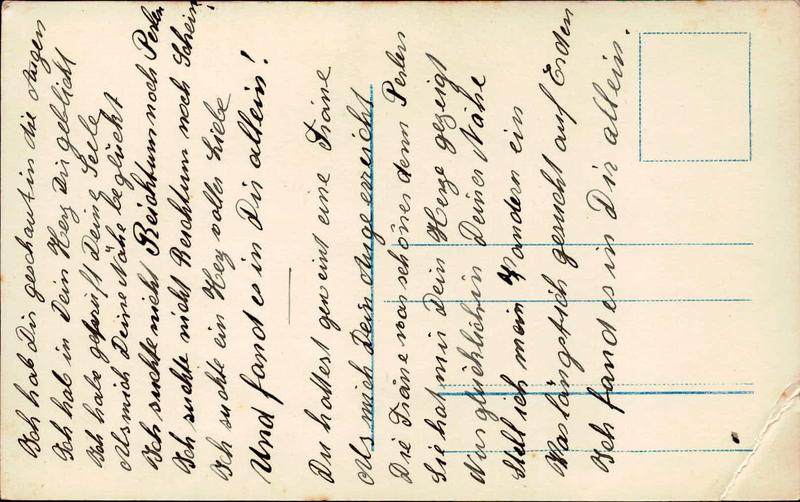 Ich hab Dir geschaut in die Augen
Ich hab in Dein Herz Dir geblickt
Ich habe geprüft Deine Seele
Als mich Deine Nähe beglückt
Ich suchte nicht Reichtum noch Perlen
Ich suchte nicht Reichtum noch Schein!
Ich suchte ein Herz voller Liebe
Und fand es in Dir allein!
Du hattest geweint eine Träne
Als mich Dein Auge erreicht
Die Träne war schöner denn Perlen
Sie hat mir Dein Herze gezeigt
Nur glücklich in Deiner Nähe
Stell ich mein Wandern ein
Was längst ich gesucht auf Erden
Ich fand es in Dir allein.